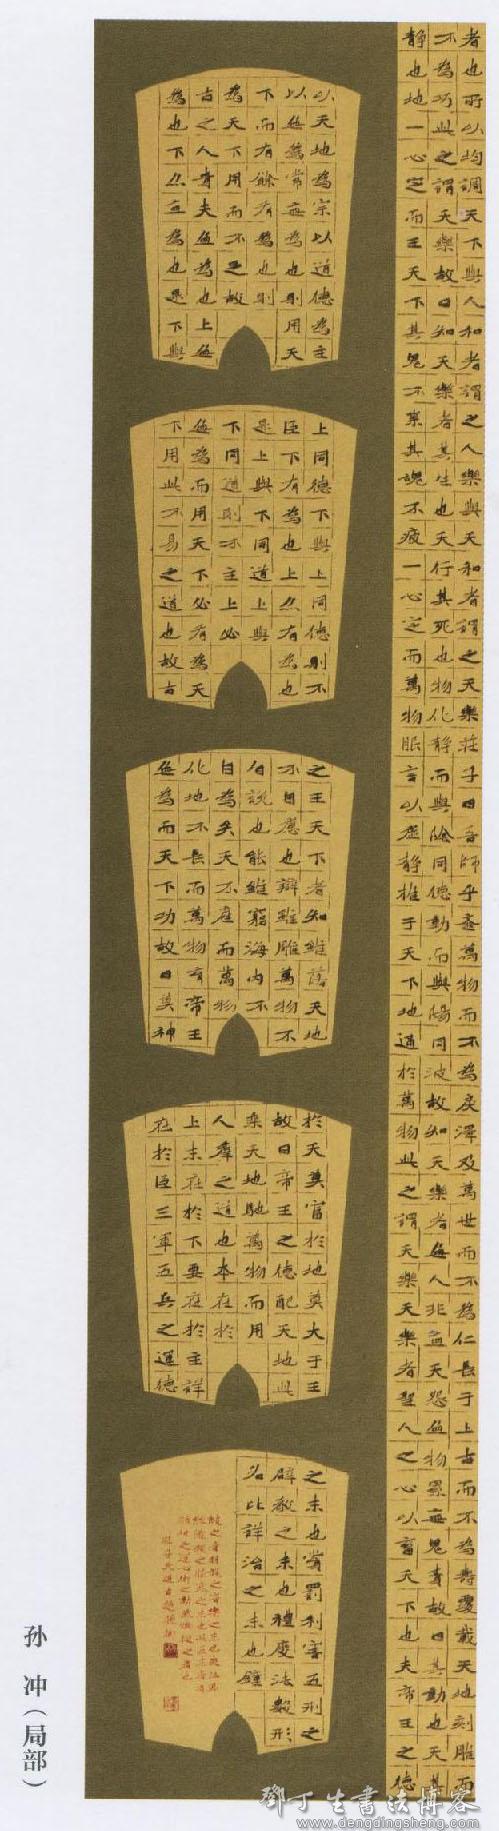 者也所以均調天下與人和者謂之人樂與天和者謂之天樂莊子曰吾師乎齏萬物而不為戾澤及萬世而不為仁長于上古而不為壽覆載天地刻雕而
不為巧此之謂天樂故曰知天樂者其生也天行其死也物化靜而與陰同德動而與陽同波故知天樂者無人非無天怨無物累無鬼責故曰其動也天其
靜也地一心定而王天下其鬼不祟其魂不疲一心定而萬物服言以虛靜推于天下地通於萬物此之謂天樂天樂者聖人之心以畜天下也夫帝王之德
以天地為宗以道德為主
以無為常無為也則用天
下而有餘有為也則
為天下用而不足故
古之人貴夫無為也上無
為也下亦無為也是下與
上同德下與上同德則不
臣下有為也上亦有為也
是上與下同道上與
下同道則不主上必
無為而用天下必有為天
下用此不易之道也故古
之王天下者知雖落天地
不自慮也辯雖雕萬物不
自說也能雖窮海內不
自為矣天不產而萬物
化地不長而萬物育帝王
無為而天下功故曰莫神
於天莫富於地莫大于王
故曰帝王之德配天地此
乘天地馳萬物而用
人群之道也本在於
上末在於下要在於主詳
在於臣三軍五兵之運德
之末也賞罰利害五刑之
辟教之末也禮度法數形
名比詳治之末也鐘
鼓之音羽旄之容樂之末也哭泣衰
絰隆殺之服哀之末也此五末者須
精神之運心術之動然後從之者也
孙冲（局部）
鄧丁生書法博客
www.dengdingsheng.com